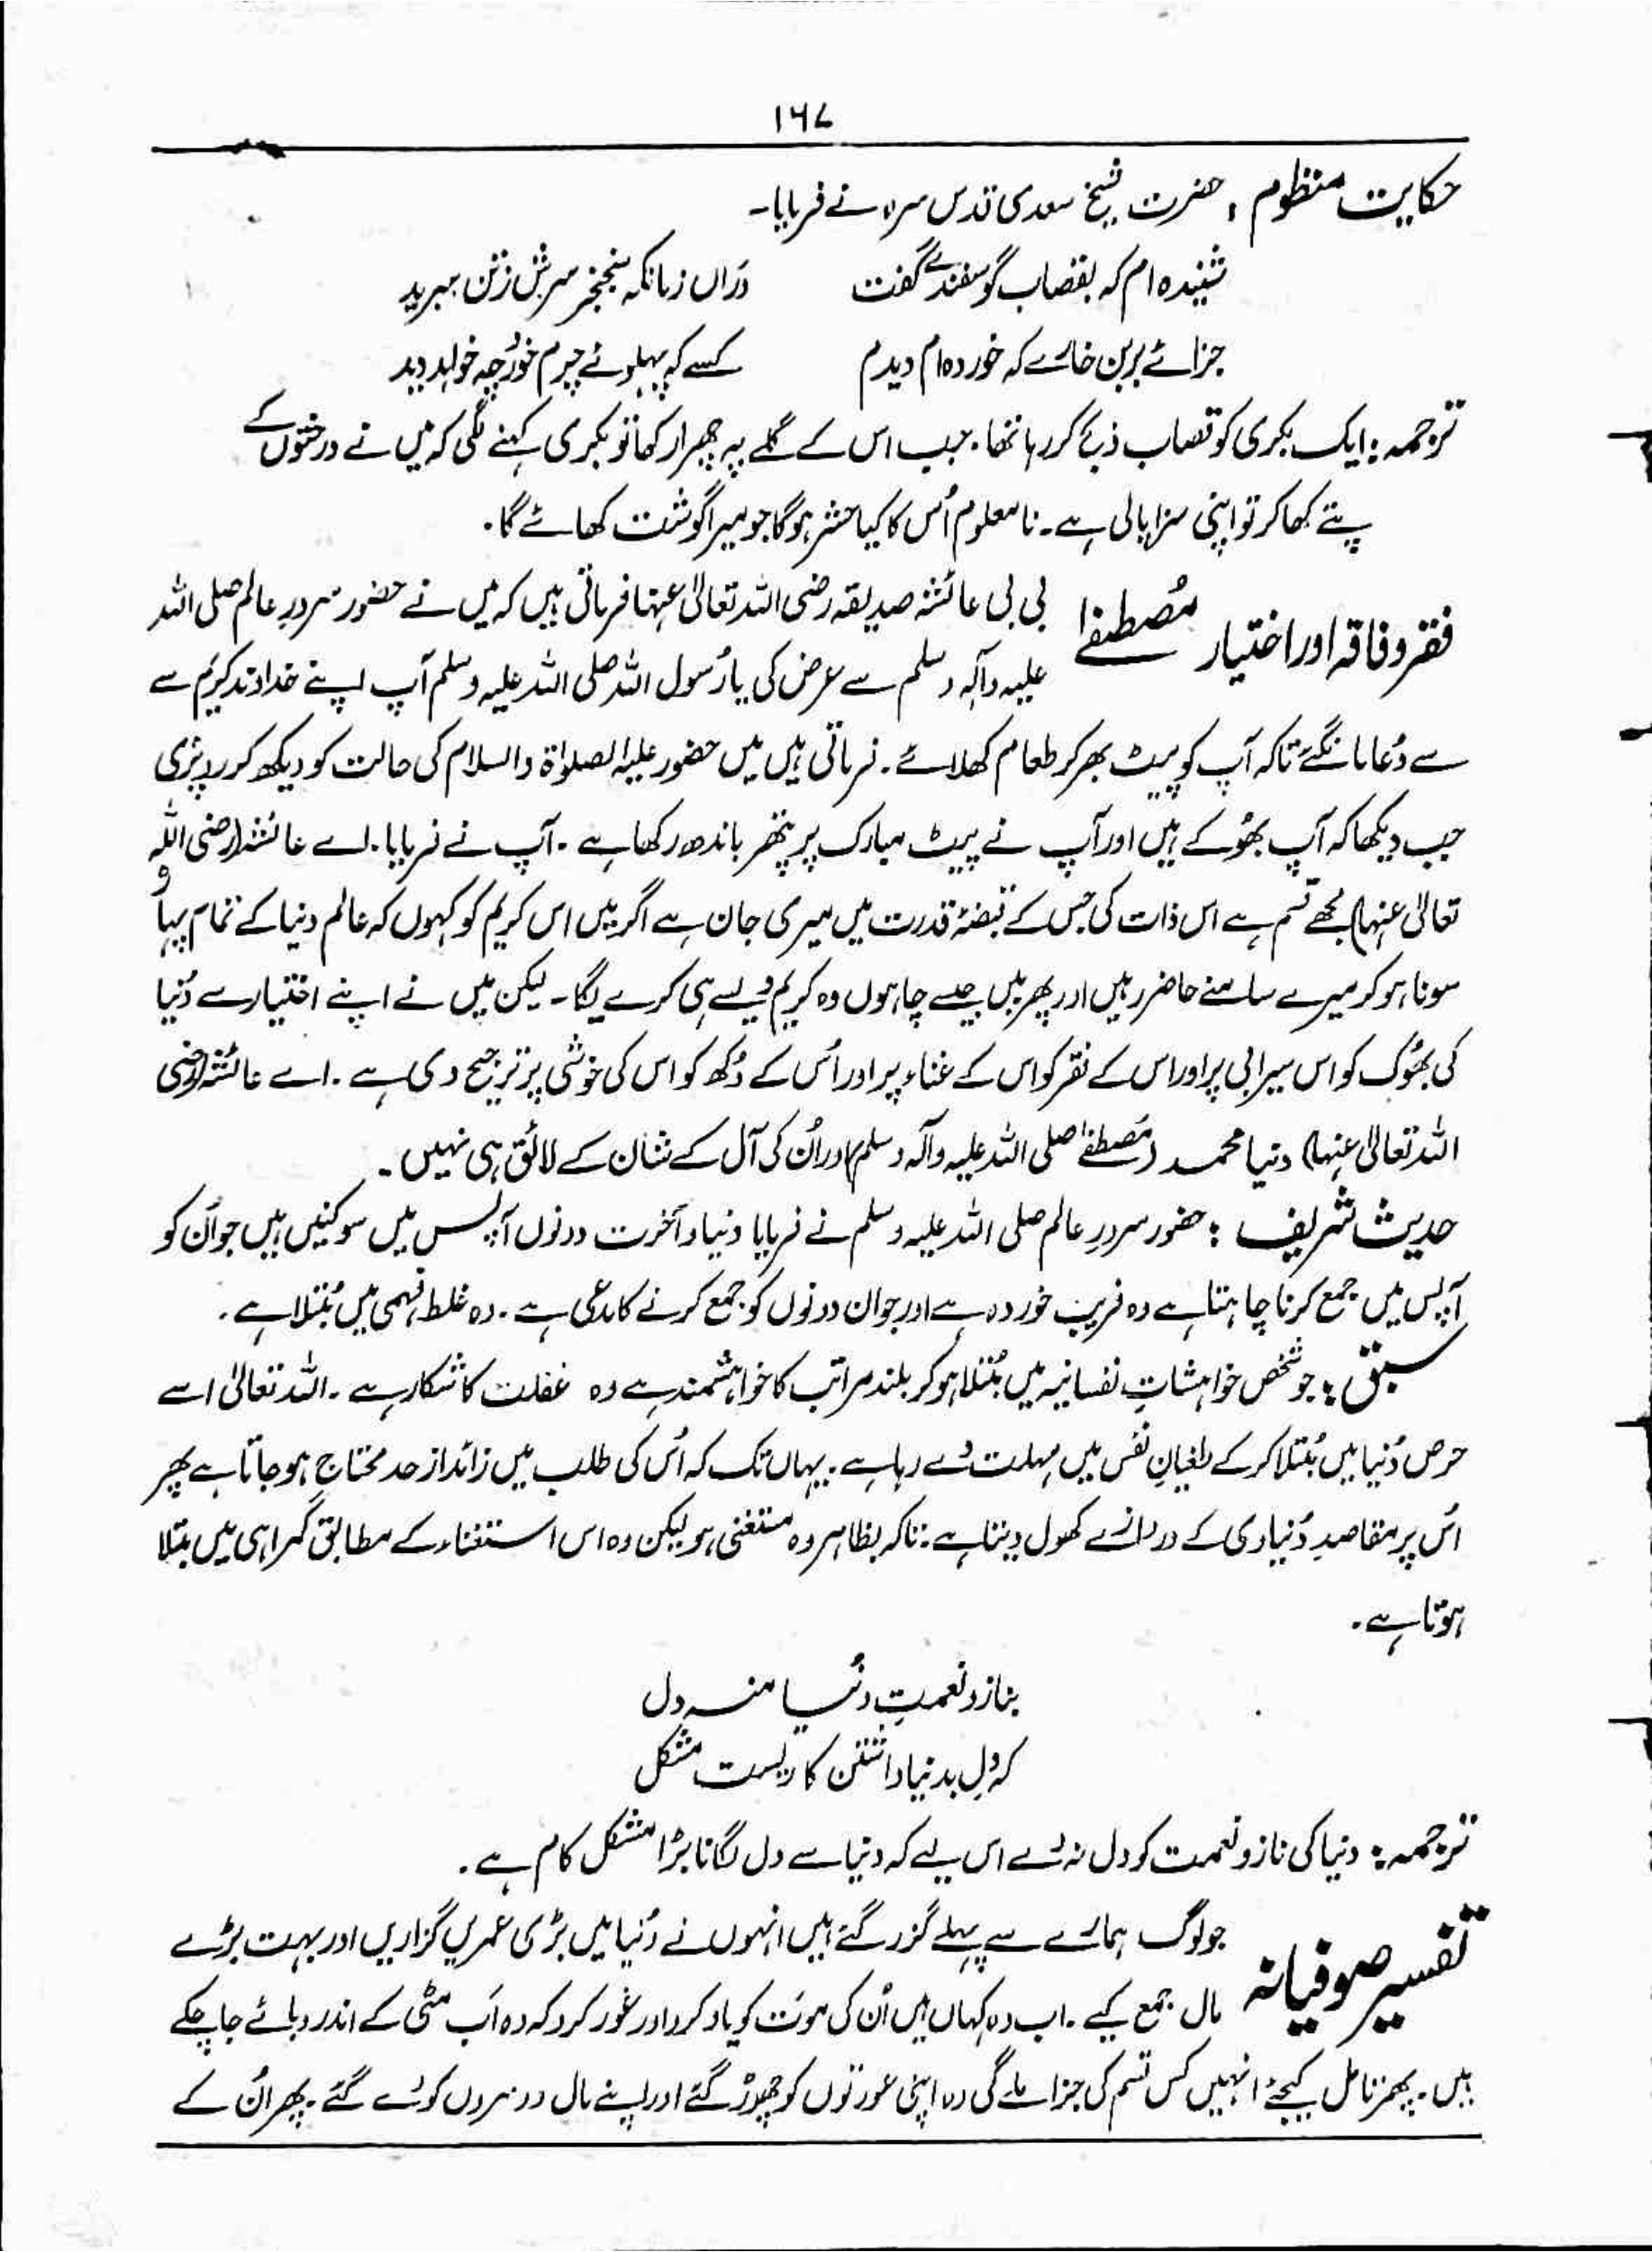 ۱۶۷
حکایت منظوم : حضرت شیخ سعدی قدس سرہ نے فرمایا۔
شنیدہ ام کہ بقصاب گوسفندے گفت دراں زمانکہ بخنجر سرش زتن ببرید
جزائے ہربن خارے کہ خوردہ ام دیدم کسے کہ پہلوئے چرم خورد چہ خواہد دید
ترجمہ : ایک بکری کو قصاب ذبح کر رہا تھا۔ جب اس کے گلے پہ چھرا رکھا تو بکری کہنے لگی کہ میں نے درختوں کے
پتے کھا کر تو اپنی سزا پالی ہے۔ نامعلوم اُس کا کیا حشر ہوگا جو میرا گوشت کھائے گا۔
فقر وفاقہ اور اختیار مُصطفےٰ بی بی عائشہ صدیقہ رضی اللہ تعالیٰ عنہا فرماتی ہیں کہ میں نے حضور سرورِ عالم صلی اللہ
علیہ وآلہ وسلم سے عرض کی یا رُسول اللہ صلی اللہ علیہ وسلم آپ اپنے خداوند کریم سے
سے دُعا مانگئے تاکہ آپ کو پیٹ بھر کر طعام کھلائے۔ فرماتی ہیں میں حضور علیہ الصلوٰۃ والسلام کی حالت کو دیکھ کر رو پڑی
جب دیکھا کہ آپ بھُوکے ہیں اور آپ نے پیٹ مبارک پر پتھر باندھ رکھا ہے۔ آپ نے فرمایا۔ اے عائشہ (رضی اللہ
تعالیٰ عنہا) مجھے قسم ہے اس ذات کی جس کے قبضۂ قدرت میں میری جان ہے اگر میں اس کریم کو کہوں کہ عالم دنیا کے تمام پہاڑ
سونا ہو کر میرے سامنے حاضر رہیں اور پھر میں جیسے چاہوں وہ کریم ویسے ہی کرے گا۔ لیکن میں نے اپنے اختیار سے دُنیا
کی بھُوک کو اس سیرابی پر اور اس کے فقر کو اس کے غناء پر اور اُس کے دُکھ کو اس کی خوشی پر ترجیح دی ہے۔ اے عائشہ (رضی
اللہ تعالیٰ عنہا) دنیا محمد (مُصطفےٰ صلی اللہ علیہ وآلہ وسلم) اور اُن کی آل کے شان کے لائق ہی نہیں۔
حدیث شریف : حضور سرورِ عالم صلی اللہ علیہ وسلم نے فرمایا دنیا و آخرت دونوں آپس میں سوکنیں ہیں جو اُن کو
آپس میں جمع کرنا چاہتا ہے وہ فریب خوردہ ہے اور جو ان دونوں کو جمع کرنے کا مدعی ہے۔ وہ غلط فہمی میں مُبتلا ہے۔
سبق : جو شخص خواہشاتِ نفسانیہ میں مُبتلا ہو کر بلند مراتب کا خواہشمند ہے وہ غفلت کا شکار ہے۔ اللہ تعالیٰ اسے
حرص دُنیا میں مُبتلا کر کے طغیانِ نفس میں مہلت دے رہا ہے۔ یہاں تک کہ اُس کی طلب میں زائد از حد محتاج ہو جاتا ہے پھر
اُس پر مقاصدِ دُنیاوی کے دروازے کھول دیتا ہے۔ تاکہ بظاہر وہ مستغنی ہو لیکن وہ اس استغناء کے مطابق گمراہی میں مبتلا
ہوتا ہے۔
بناز و نعمتِ دنیا منہ دل
کہ دل بدنیا داشتن کاریست مشکل
ترجمہ : دنیا کی ناز و نعمت کو دل نہ دے اس لیے کہ دنیا سے دل لگانا بڑا مشکل کام ہے۔
تفسیر صوفیانہ جو لوگ ہمارے سے پہلے گزر گئے ہیں انہوں نے دُنیا میں بڑی عمریں گزاریں اور بہت بڑے
مال جمع کیے۔ اب وہ کہاں ہیں اُن کی موت کو یاد کرو اور غور کرو کہ وہ اَب مٹی کے اندر دبائے جا چکے
ہیں۔ پھر تامل کیجئے انہیں کس قسم کی جزا ملے گی وہ اپنی عورتوں کو چھوڑ گئے اور اپنے مال دوسروں کو دے گئے۔ پھر اُن کے